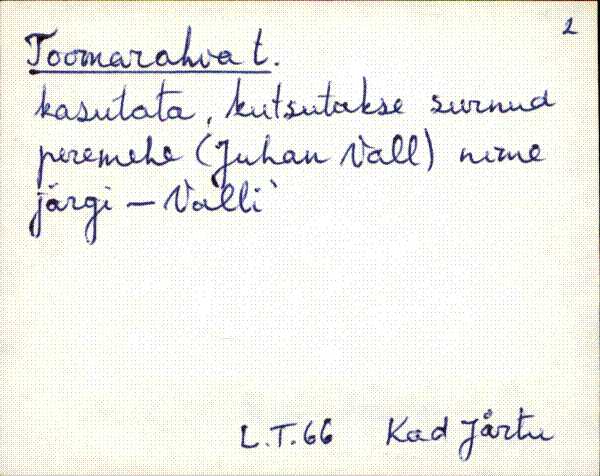 2
Toomarahva t.
kasutata, kutsutakse surnud
peremehe (Juhan Vall) nime
järgi – Valli`
L.T.66 Kad Järtu